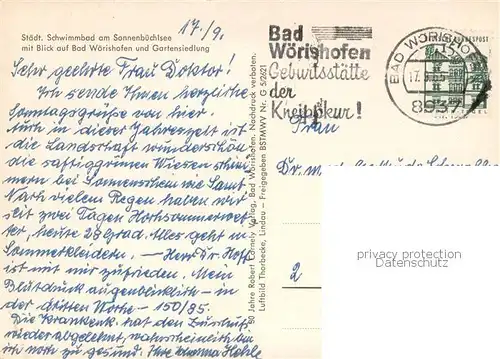 Städt. Schwimmbad am Sonnenbüchlsee
mit Blick auf Bad Wörishofen und Gartensiedlung
17./9.
Sehr geehrte Frau Doktor!
Ich sende Ihnen herzliche
Sonntagsgrüße von hier.
Auch in dieser Jahreszeit ist
die Landschaft wunderschön
die saftiggrünen Wiesen schim-
mern bei Sonnenschein wie Samt.
Nach vielem Regen haben wir
seit zwei Tagen Hochsommerwet-
ter, heute 28 grad. Alles geht in
Sommerkleidern. — Herr Dr. Hoff
ist mit mir zufrieden. Mein
Blutdruck augenblicklich — in
der dritten Woche — 150/85.
Die Krankenk. hat den Zuschuß
wieder abgelehnt, wahrscheinlich bin
ich noch zu gesund. Ihre
50 Jahre Robert Verlag, Bad Wörishofen. Nachdruck verboten.
Luftbild Thorbecke, Lindau - Freigegeben BSTMWV Nr. G 5/262
Bad
Wörishofen
Geburtsstätte
der
Kneippkur!
BAD WÖRISHOFEN
8937
DEUTSCHE BUNDESPOST
Frau
Dr. med.
2
privacy protection
Datenschutz